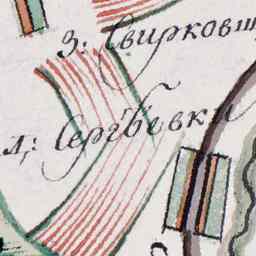 З: Свирковщ
л: Сергѣевки